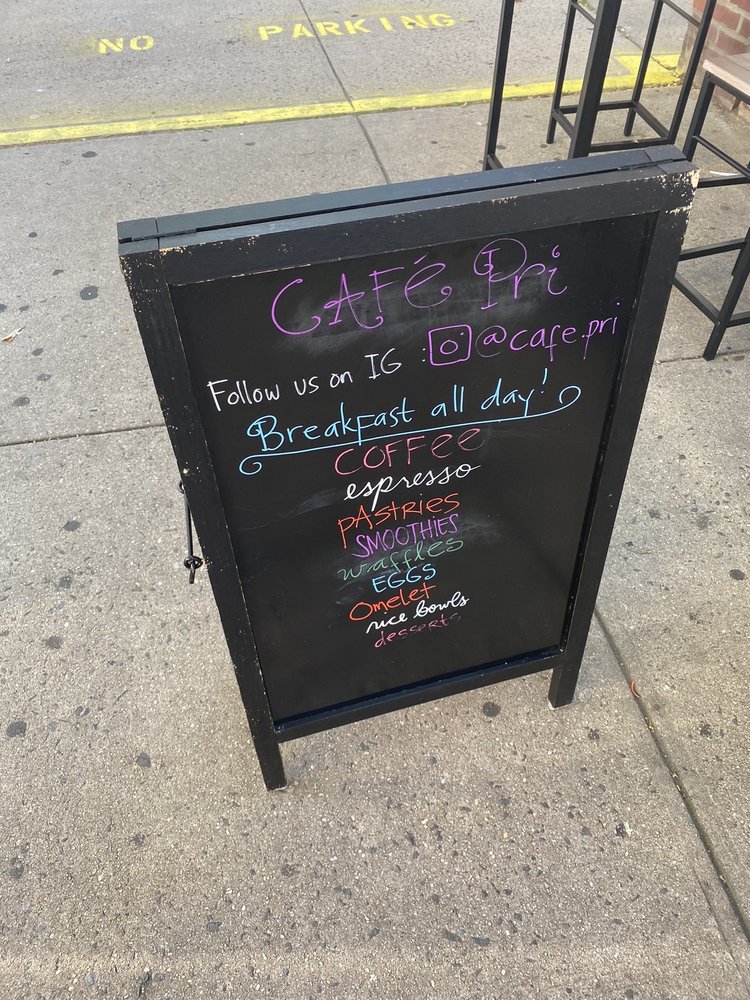 NO PARKING
CAFé Pri
Follow us on IG : @cafe.pri
Breakfast all day!
COFFee
espresso
pAstries
SMOOTHIES
waffles
EGGS
Omelet
rice bowls
desserts